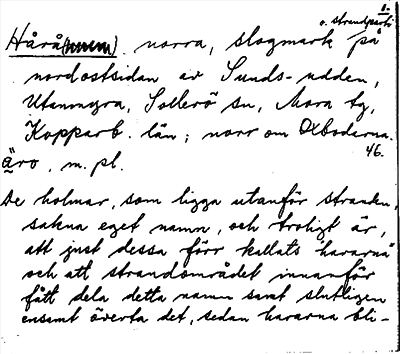 1.
o. strandparti
Hårå(rna) norra, slogmark på
nordostsidan av Sunds-udden,
Utanmyra, Sollerö sn, Mora tg,
Kopparb. län; norr om Åbodarna.
46.
äro, m. pl.
De holmar, som ligga utanför stranden,
sakna eget namn, och troligt är,
att just dessa förr kallats "hararna"
och att strandområdet innanför
fått dela detta namn samt slutligen
ensamt överta det, sedan hararna bli-